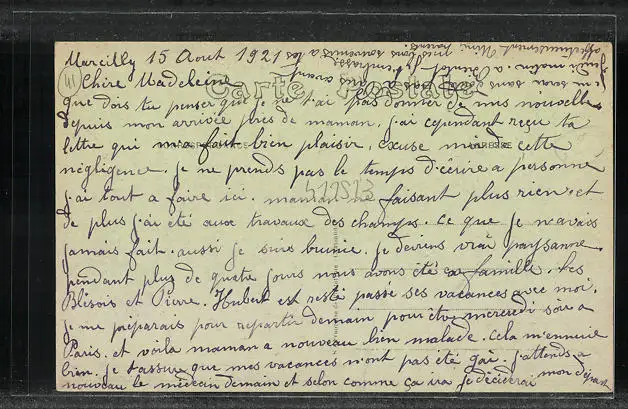 Marcilly 15 Aout 1921
Chère Madeleine
Carte Postale
41
Que dois tu penser que je ne t'ai pas donner de mes nouvelles
depuis mon arrivée près de maman, j'ai cependant reçu ta
lettre qui m'a fait bien plaisir, excuse moi de cette
négligence. Je ne prends pas le temps d'écrire a personne
j'ai tout a faire ici. maman ne faisant plus rien. et
412513
de plus j'ai été aux travaux des champs. ce que je n'avais
jamais fait. aussi je suis brunie. je deviens vrai paysanne.
pendant plus de quatre jours nous avons été en famille. Les
Blésois et Pierre. Hubert est resté passé ses vacances avec moi.
je me préparais pour repartir demain pour être mercredi soir a
Paris. et voila maman a nouveau bien malade. cela m'ennuie
bien. je t'assure que mes vacances n'ont pas été gai. j'attends a
nouveau le médecin demain et selon comme ça ira je déciderai mon départ